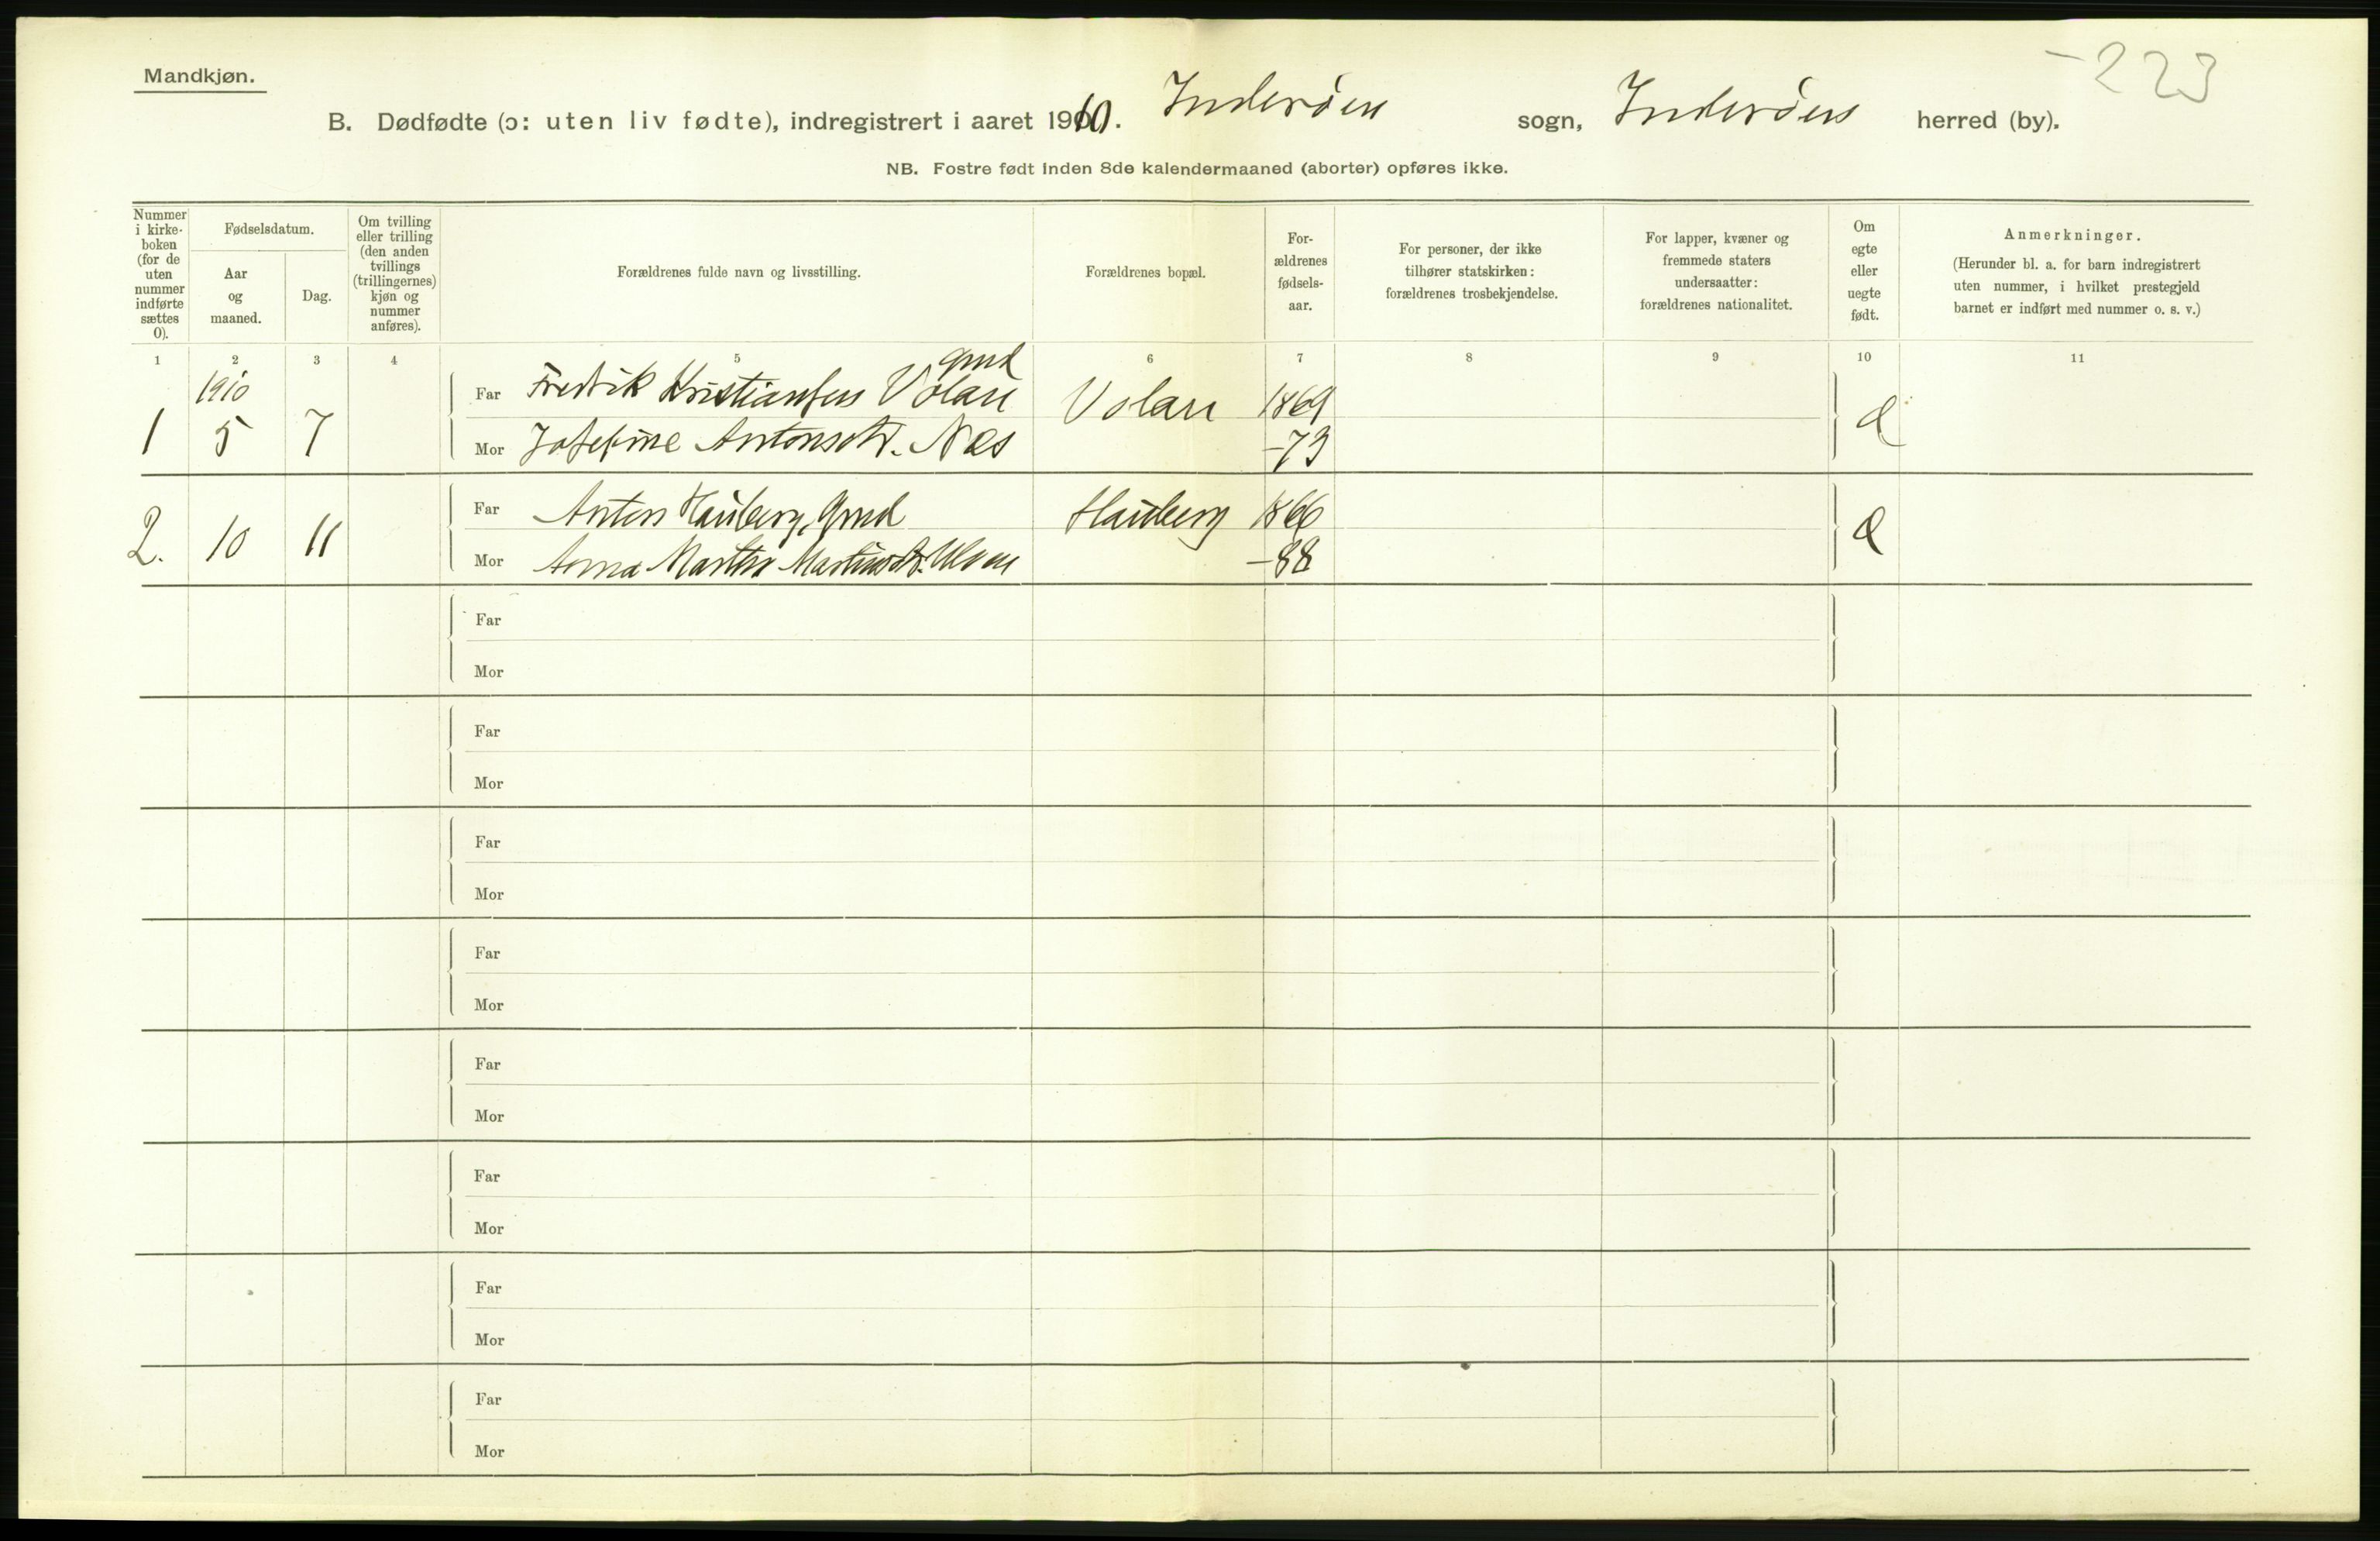 Mandkjøn.
-223
B. Dødfødte (ɔ: uten liv fødte), indregistrert i aaret 1910. Inderøen sogn, Inderøen herred (by).
NB. Fostre født inden 8de kalendermaaned (aborter) opføres ikke.
Nummer i kirke-boken (for de uten nummer indførte sættes 0).
Fødselsdatum.
Aar og maaned.
Dag.
Om tvilling eller trilling (den anden tvillings (trillingernes) kjøn og nummer anføres).
Forældrenes fulde navn og livsstilling.
Forældrenes bopæl.
For-ældrenes fødsels-aar.
For personer, der ikke tilhører statskirken: forældrenes trosbekjendelse.
For lapper, kvæner og fremmede staters undersaatter: forældrenes nationalitet.
Om egte eller uegte født.
Anmerkninger.
(Herunder bl. a. for barn indregistrert uten nummer, i hvilket prestegjeld barnet er indført med nummer o. s. v.)
1 2 3 4 5 6 7 8 9 10 11
1910
gmd
Far Fredrik Kristiansen Volan Volan 1869
1 5 7 Mor Josefine Antonsdtr. Næs -73
Far Anton Hauberg, gmd Hauberg 1866
2. 10 11 Mor Anna Martha -88
Far
Mor
Far
Mor
Far
Mor
Far
Mor
Far
Mor
Far
Mor
Far
Mor
Far
Mor